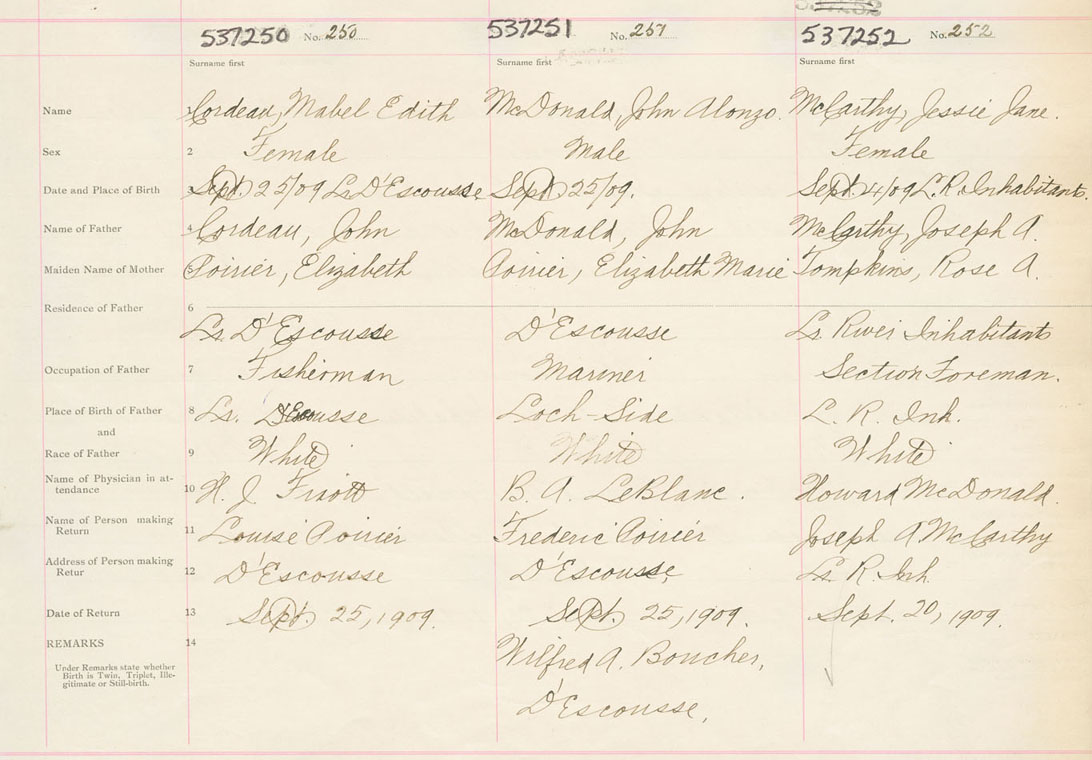 537250 No. 250 537251 No. 251 537252 No. 252
Surname first Surname first Surname first
Name 1 Cordeau, Mabel Edith McDonald, John Alonzo. McCarthy, Jessie Jane.
Sex 2 Female Male Female
Date and Place of Birth 3 Sept. 25/09 Lr. D'Escousse Sept 25/09. Sept. 4/09 L. R. Inhabitants
Name of Father 4 Cordeau, John McDonald, John McCarthy, Joseph A.
Maiden Name of Mother 5 Poirier, Elizabeth Poirier, Elizabeth Marie Tompkins, Rose A.
Residence of Father 6
Lr. D'Escousse D'Escousse Lr. River Inhabitants
Occupation of Father 7 Fisherman Mariner Section Foreman.
Place of Birth of Father 8 Lr. DEscousse Loch-Side L. R. Inh.
and
Race of Father 9 White White White
Name of Physician in at-
tendance 10 H. J. B. A. LeBlanc. Howard McDonald.
Name of Person making
Return 11 Louise Poirier Frederic Poirier Joseph A McCarthy
Address of Person making
Retur 12 D'Escousse D'Escousse, Lr. R. Inh
Date of Return 13 Sept. 25, 1909. Sept. 25, 1909. Sept. 20, 1909.
REMARKS 14 Wilfred A. Boucher,
Under Remarks state whether
Birth is Twin, Triplet, Ille-
gitimate or Still-birth.
D'Escousse,